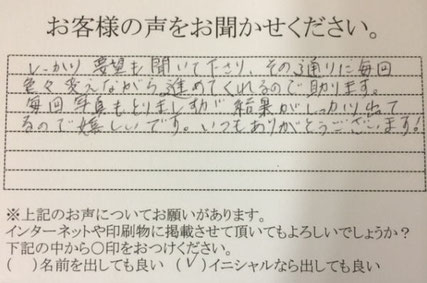 お客様の声をお聞かせください。
しっかり要望も聞いて下さり、その通りに毎回
色々変えながら進めてくれるので助ります。
毎回写真もとりますが結果がしっかり出て
るので嬉しいです。いつもありがとうございます!
※上記のお声についてお願いがあります。
インターネットや印刷物に掲載させて頂いてもよろしいでしょうか?
下記の中から○印をおつけください。
( )名前を出しても良い (✓)イニシャルなら出しても良い